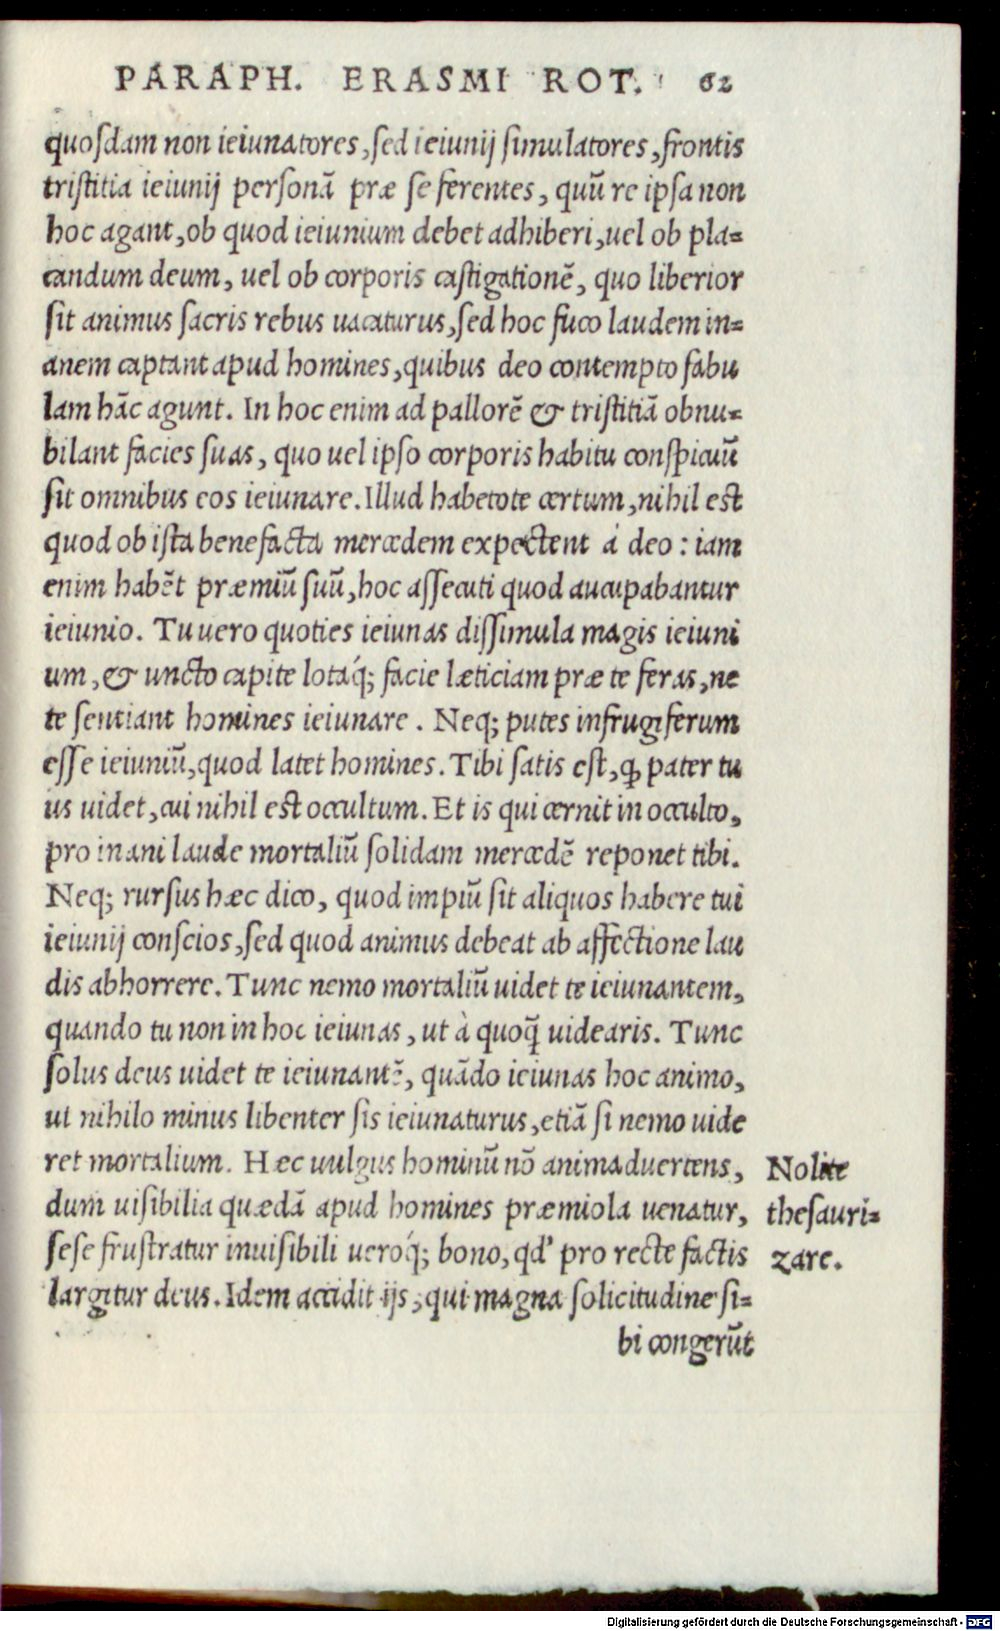 PARAPH. ERASMI ROT. 62
quoſdam non ieiunatores, ſed ieiunij ſimulatores, frontis
triſtitia ieiunij perſonā præ ſe ferentes, quū re ipſa non
hoc agant, ob quod ieiunium debet adhiberi, uel ob pla=
candum deum, uel ob corporis caſtigationē, quo liberior
ſit animus ſacris rebus uacaturus, ſed hoc fuco laudem in=
anem captant apud homines, quibus deo contempto fabu
lam hāc agunt. In hoc enim ad pallorē & triſtitiā obnu=
bilant facies ſuas, quo uel ipſo corporis habitu conſpicuū
ſit omnibus eos ieiunare. Illud habetote certum, nihil est
quod ob iſta benefacta mercedem expectent à deo : iam
enim habēt præmiū ſuū, hoc aſſecuti quod aucupabantur
ieiunio. Tu uero quoties ieiunas diſſimula magis ieiuni
um, & uncto capite lotaq́; facie læticiam præ te feras, ne
te ſentiant homines ieiunare . Neq; putes infrugiferum
eſſe ieiuniū, quod latet homines. Tibi ſatis eſt, ꝙ pater tu
us uidet, cui nihil est occultum. Et is qui cernit in occulto,
pro inani laude mortaliū ſolidam mercedē reponet tibi.
Neq; rurſus hæc dico, quod impiū ſit aliquos habere tui
ieiunij conſcios, ſed quod animus debeat ab affectione lau
dis abhorrere. Tunc nemo mortaliū uidet te ieiunantem,
quando tu non in hoc ieiunas, ut à quoq̄ uidearis. Tunc
ſolus deus uidet te ieiunantē, quādo ieiunas hoc animo,
ut nihilo minus libenter ſis ieiunaturus, etiā ſi nemo uide
ret mortalium. Hæc uulgus hominū nō animaduertens,
dum uiſibilia quædā apud homines præmiola uenatur,
ſeſe fruſtratur inuiſibili ueroq́; bono, qd' pro recte factis
largitur deus. Idem accidit ijs, qui magna ſolicitudine ſi=
bi congerūt
Nolite
theſauri=
zare.
Digitalisierung gefördert durch die Deutsche Forschungsgemeinschaft - DFG